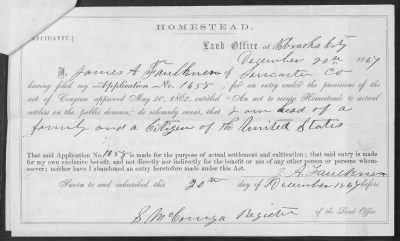 HOMESTEAD.
[AFFIDAVIT.]
Land Office at Nebraska City
December 20th 1867
I, James A Faulkner of Lancaster Co
having filed my Application No. 1658, for an entry under the provisions of the
act of Congress approved May 20, 1862, entitled "An act to secure Homesteads to actual
settlers on the public domain," do solemnly swear, that I am head of a
family and a Citizen of the United States
That said Application No. 1658 is made for the purpose of actual settlement and cultivation; that said entry is
made for my own exclusive benefit, and not directly nor indirectly for the benefit or use of any other person or persons whom-
soever; neither have I abandoned an entry heretofore made under this Act.
J. A. Faulkner
Sworn to and subscribed this 20th day of December 1867 before
Register
of the Land Office.